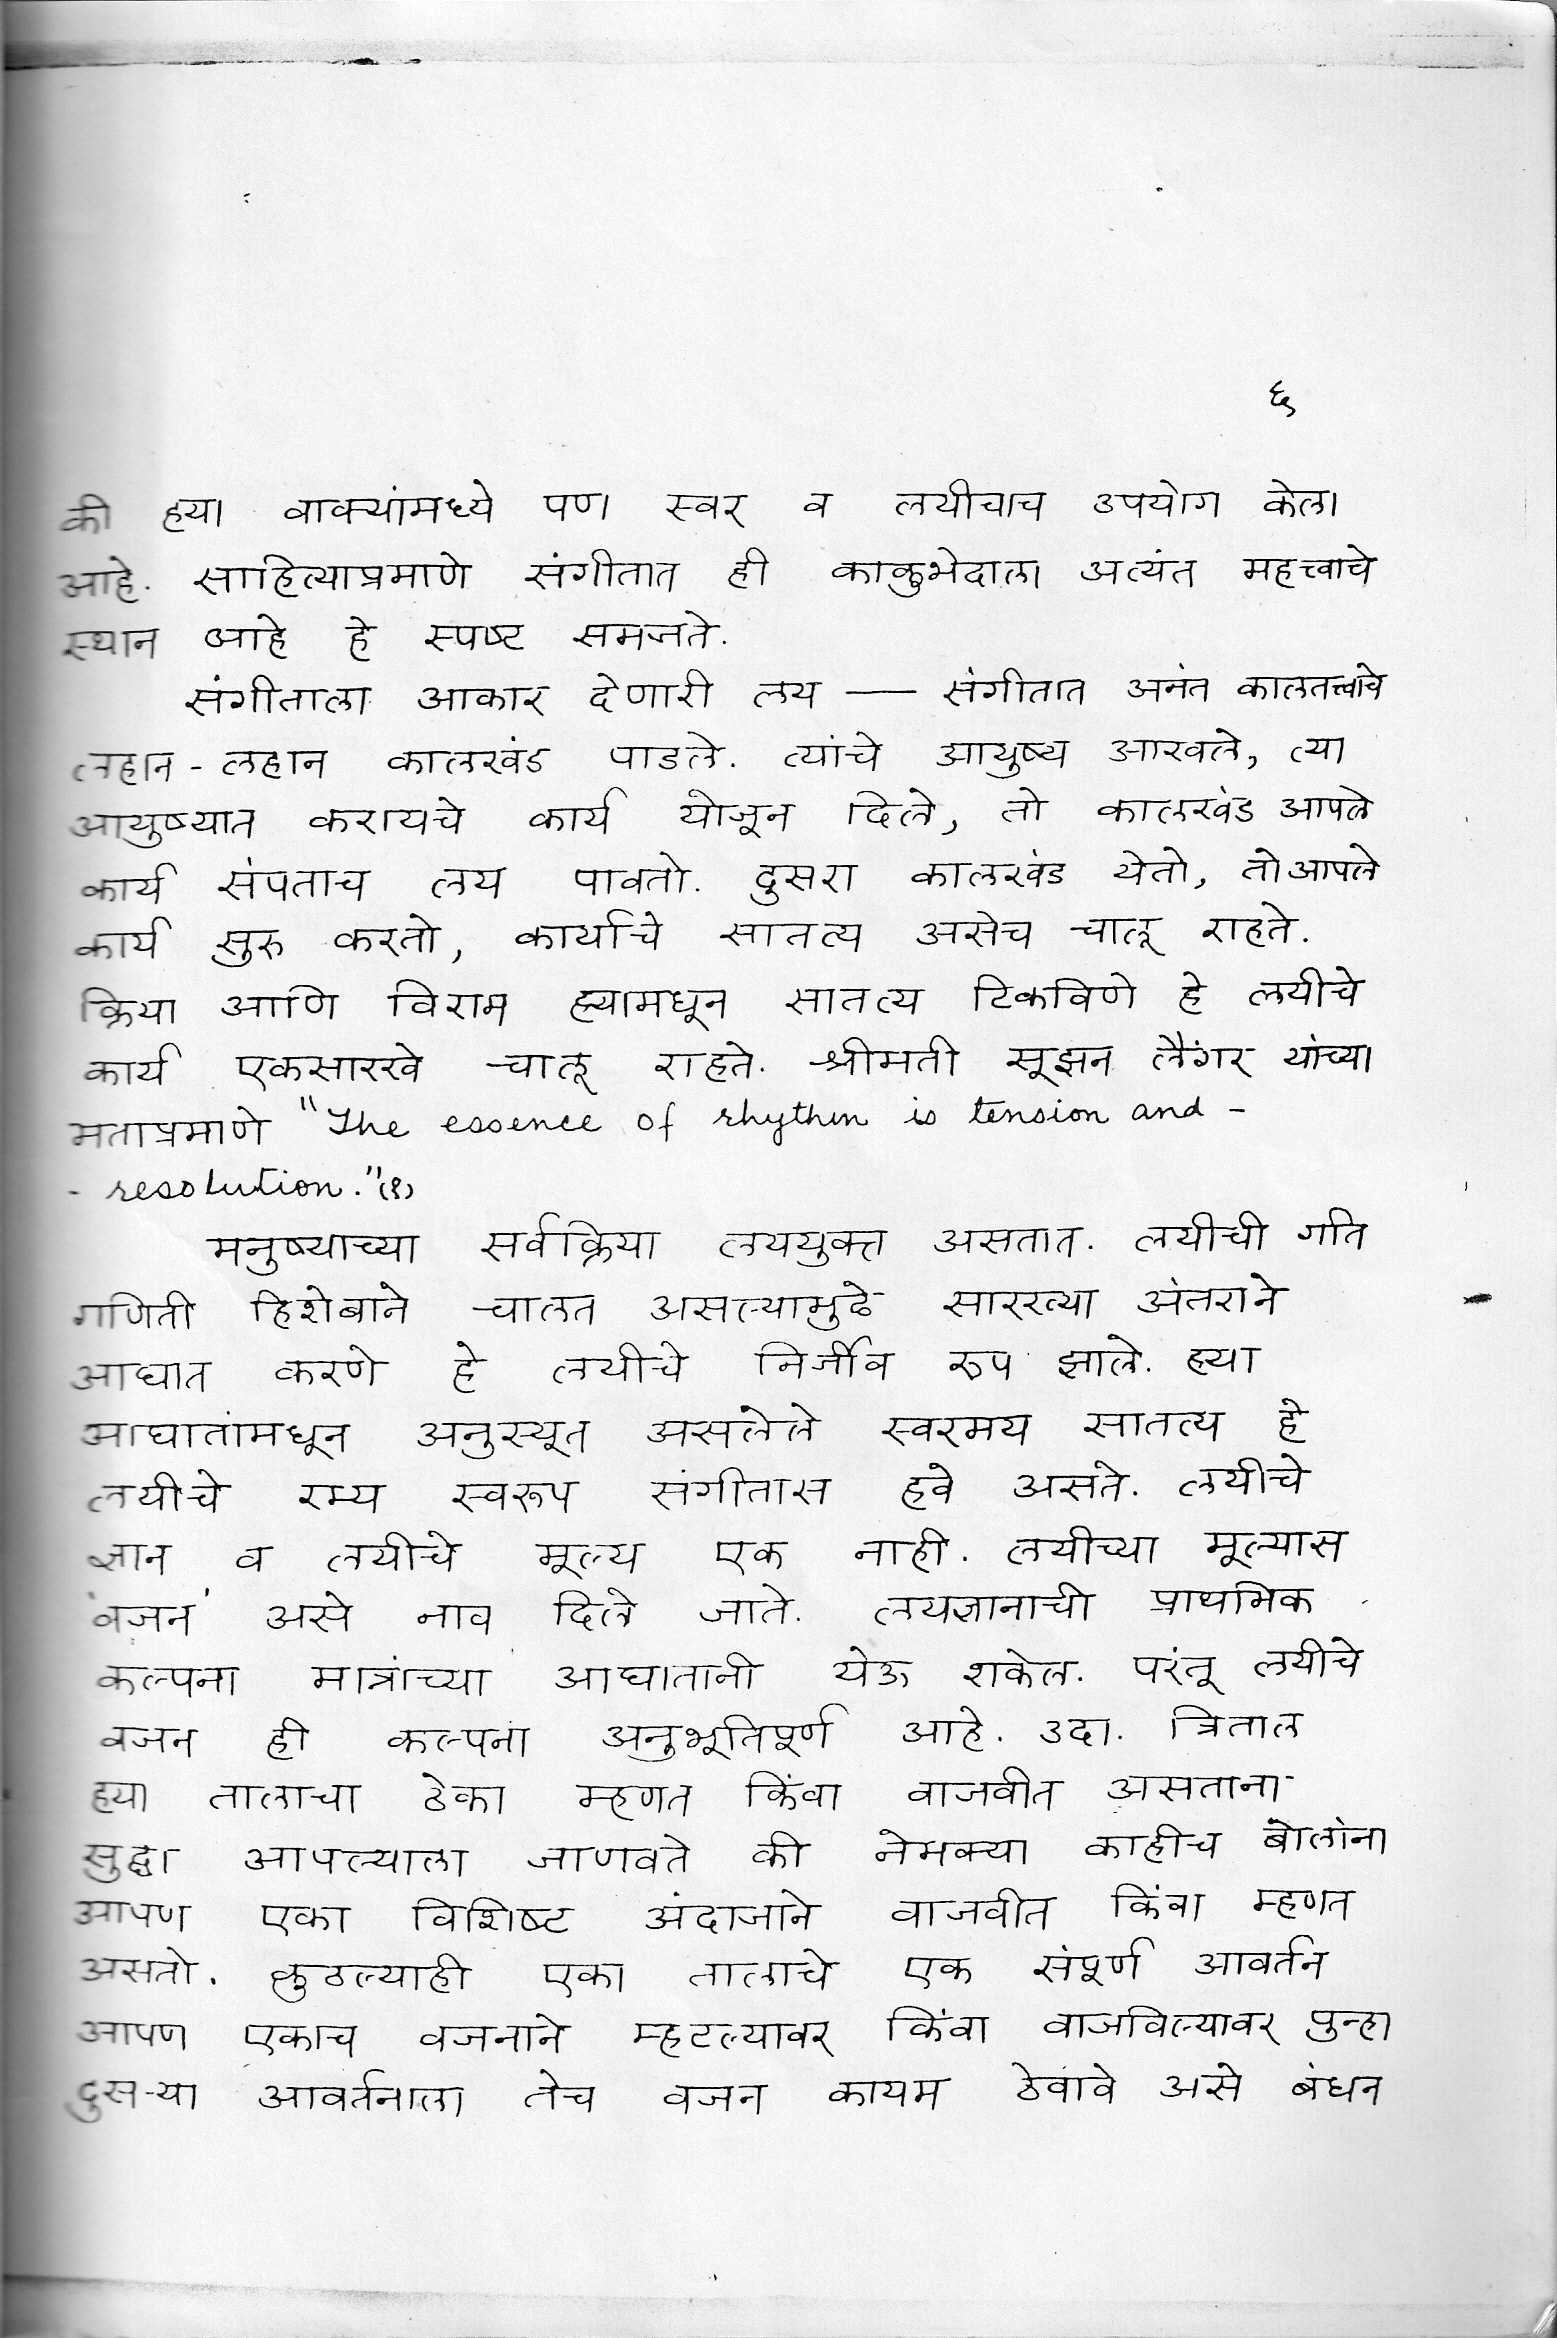 ६
की हया वाक्यांमध्ये पण स्वर व लयीचाच उपयोग केला
आहे. साहित्याप्रमाणे संगीतात ही काकुभेदाला अत्यंत महत्त्वाचे
स्थान आहे हे स्पष्ट समजते.
संगीताला आकार देणारी लय — संगीतात अनंत कालतत्त्वाचे
लहान - लहान कालखंड पाडले. त्यांचे आयुष्य आखले, त्या
आयुष्यात करायचे कार्य योजून दिले, तो कालखंड आपले
कार्य संपताच लय पावतो. दुसरा कालखंड येतो, तो आपले
कार्य सुरु करतो, कार्याचे सातत्य असेच चालू राहते.
क्रिया आणि विराम ह्यामधून सातत्य टिकविणे हे लयीचे
कार्य एकसारखे चालू राहते. श्रीमती सूझन लैंगर यांच्या
मताप्रमाणे "The essence of rhythm is tension and -
- resolution."(१)
मनुष्याच्या सर्वक्रिया लययुक्त असतात. लयीची गति
गणिती हिशेबाने चालत असल्यामुढे सारख्या अंतराने
आघात करणे हे लयीचे निर्जीव रुप झाले. ह्या
आघातांमधून अनुस्यूत असलेले स्वरमय सातत्य हे
लयीचे रम्य स्वरूप संगीतास हवे असते. लयीचे
ज्ञान व लयीचे मूल्य एक नाही. लयीच्या मूल्यास
'वजन' असे नाव दिले जाते. लयज्ञानाची प्राथमिक
कल्पना मात्रांच्या आघातानी येऊ शकेल. परंतू लयीचे
वजन ही कल्पना अनुभूतिपूर्ण आहे. उदा. त्रिताल
हया तालाचा ठेका म्हणत किंवा वाजवीत असताना
सुद्धा आपल्याला जाणवते की नेमक्या काहीच बोलांना
आपण एका विशिष्ट अंदाजाने वाजवीत किंवा म्हणत
असतो. कुठल्याही एका तालाचे एक संपूर्ण आवर्तन
आपण एकाच वजनाने म्हटल्यावर किंवा वाजविल्यावर पुन्हा
दुसऱ्या आवर्तनाला तेच वजन कायम ठेवावे असे बंधन